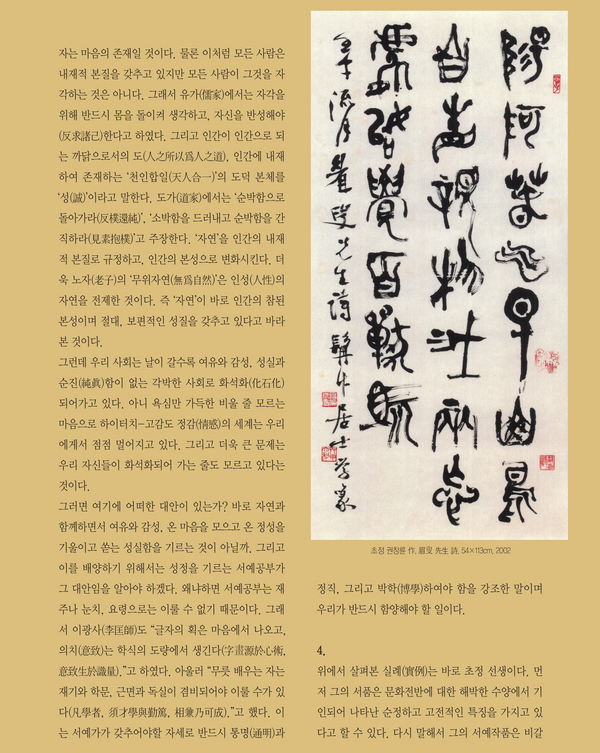 자는 마음의 존재일 것이다. 물론 이처럼 모든 사람은
내재적 본질을 갖추고 있지만 모든 사람이 그것을 자
각하는 것은 아니다. 그래서 유가(儒家)에서는 자각을
위해 반드시 몸을 돌이켜 생각하고, 자신을 반성해야
(反求諸己)한다고 하였다. 그리고 인간이 인간으로 되
는 까닭으로서의 도(人之所以爲人之道), 인간에 내재
하여 존재하는 ‘천인합일(天人合一)’의 도덕 본체를
‘성(誠)’이라고 말한다. 도가(道家)에서는 ‘순박함으로
돌아가라(反樸還純)’, ‘소박함을 드러내고 순박함을 간
직하라(見素抱樸)’고 주장한다. ‘자연’을 인간의 내재
적 본질로 규정하고, 인간의 본성으로 변화시킨다. 더
욱 노자(老子)의 ‘무위자연(無爲自然)’은 인성(人性)의
자연을 전제한 것이다. 즉 ‘자연’이 바로 인간의 참된
본성이며 절대, 보편적인 성질을 갖추고 있다고 바라
본 것이다.
그런데 우리 사회는 날이 갈수록 여유와 감성, 성실과
순진(純眞)함이 없는 각박한 사회로 화석화(化石化)
되어가고 있다. 아니 욕심만 가득한 비울 줄 모르는
마음으로 하이터치-고감도 정감(情感)의 세계는 우리
에게서 점점 멀어지고 있다. 그리고 더욱 큰 문제는
우리 자신들이 화석화되어 가는 줄도 모르고 있다는
것이다.
그러면 여기에 어떠한 대안이 있는가? 바로 자연과
함께하면서 여유와 감성, 온 마음을 모으고 온 정성을
기울이고 쏟는 성실함을 기르는 것이 아닐까. 그리고
이를 배양하기 위해서는 성정을 기르는 서예공부가
그 대안임을 알아야 하겠다. 왜냐하면 서예공부는 재
주나 눈치, 요령으로는 이룰 수 없기 때문이다. 그래
서 이광사(李匡師)도 “글자의 획은 마음에서 나오고,
의치(意致)는 학식의 도량에서 생긴다(字畫源於心術,
意致生於識量).”고 하였다. 아울러 “무릇 배우는 자는
재기와 학문, 근면과 독실이 겸비되어야 이룰 수가 있
다(凡學者, 須才學與勤篤, 相兼乃可成).”고 했다. 이
는 서예가가 갖추어야할 자세로 반드시 통명(通明)과
陽阿春气早山
自相親物我兩忘
覺百獸馴
流月眉叟先生詩 居士
초정 권창륜 作, 眉叟 先生 詩, 54×113cm, 2002
정직, 그리고 박학(博學)하여야 함을 강조한 말이며
우리가 반드시 함양해야 할 일이다.
4.
위에서 살펴본 실례(實例)는 바로 초정 선생이다. 먼
저 그의 서품은 문화전반에 대한 해박한 수양에서 기
인되어 나타난 순정하고 고전적인 특징을 가지고 있
다고 할 수 있다. 다시 말해서 그의 서예작품은 비갈